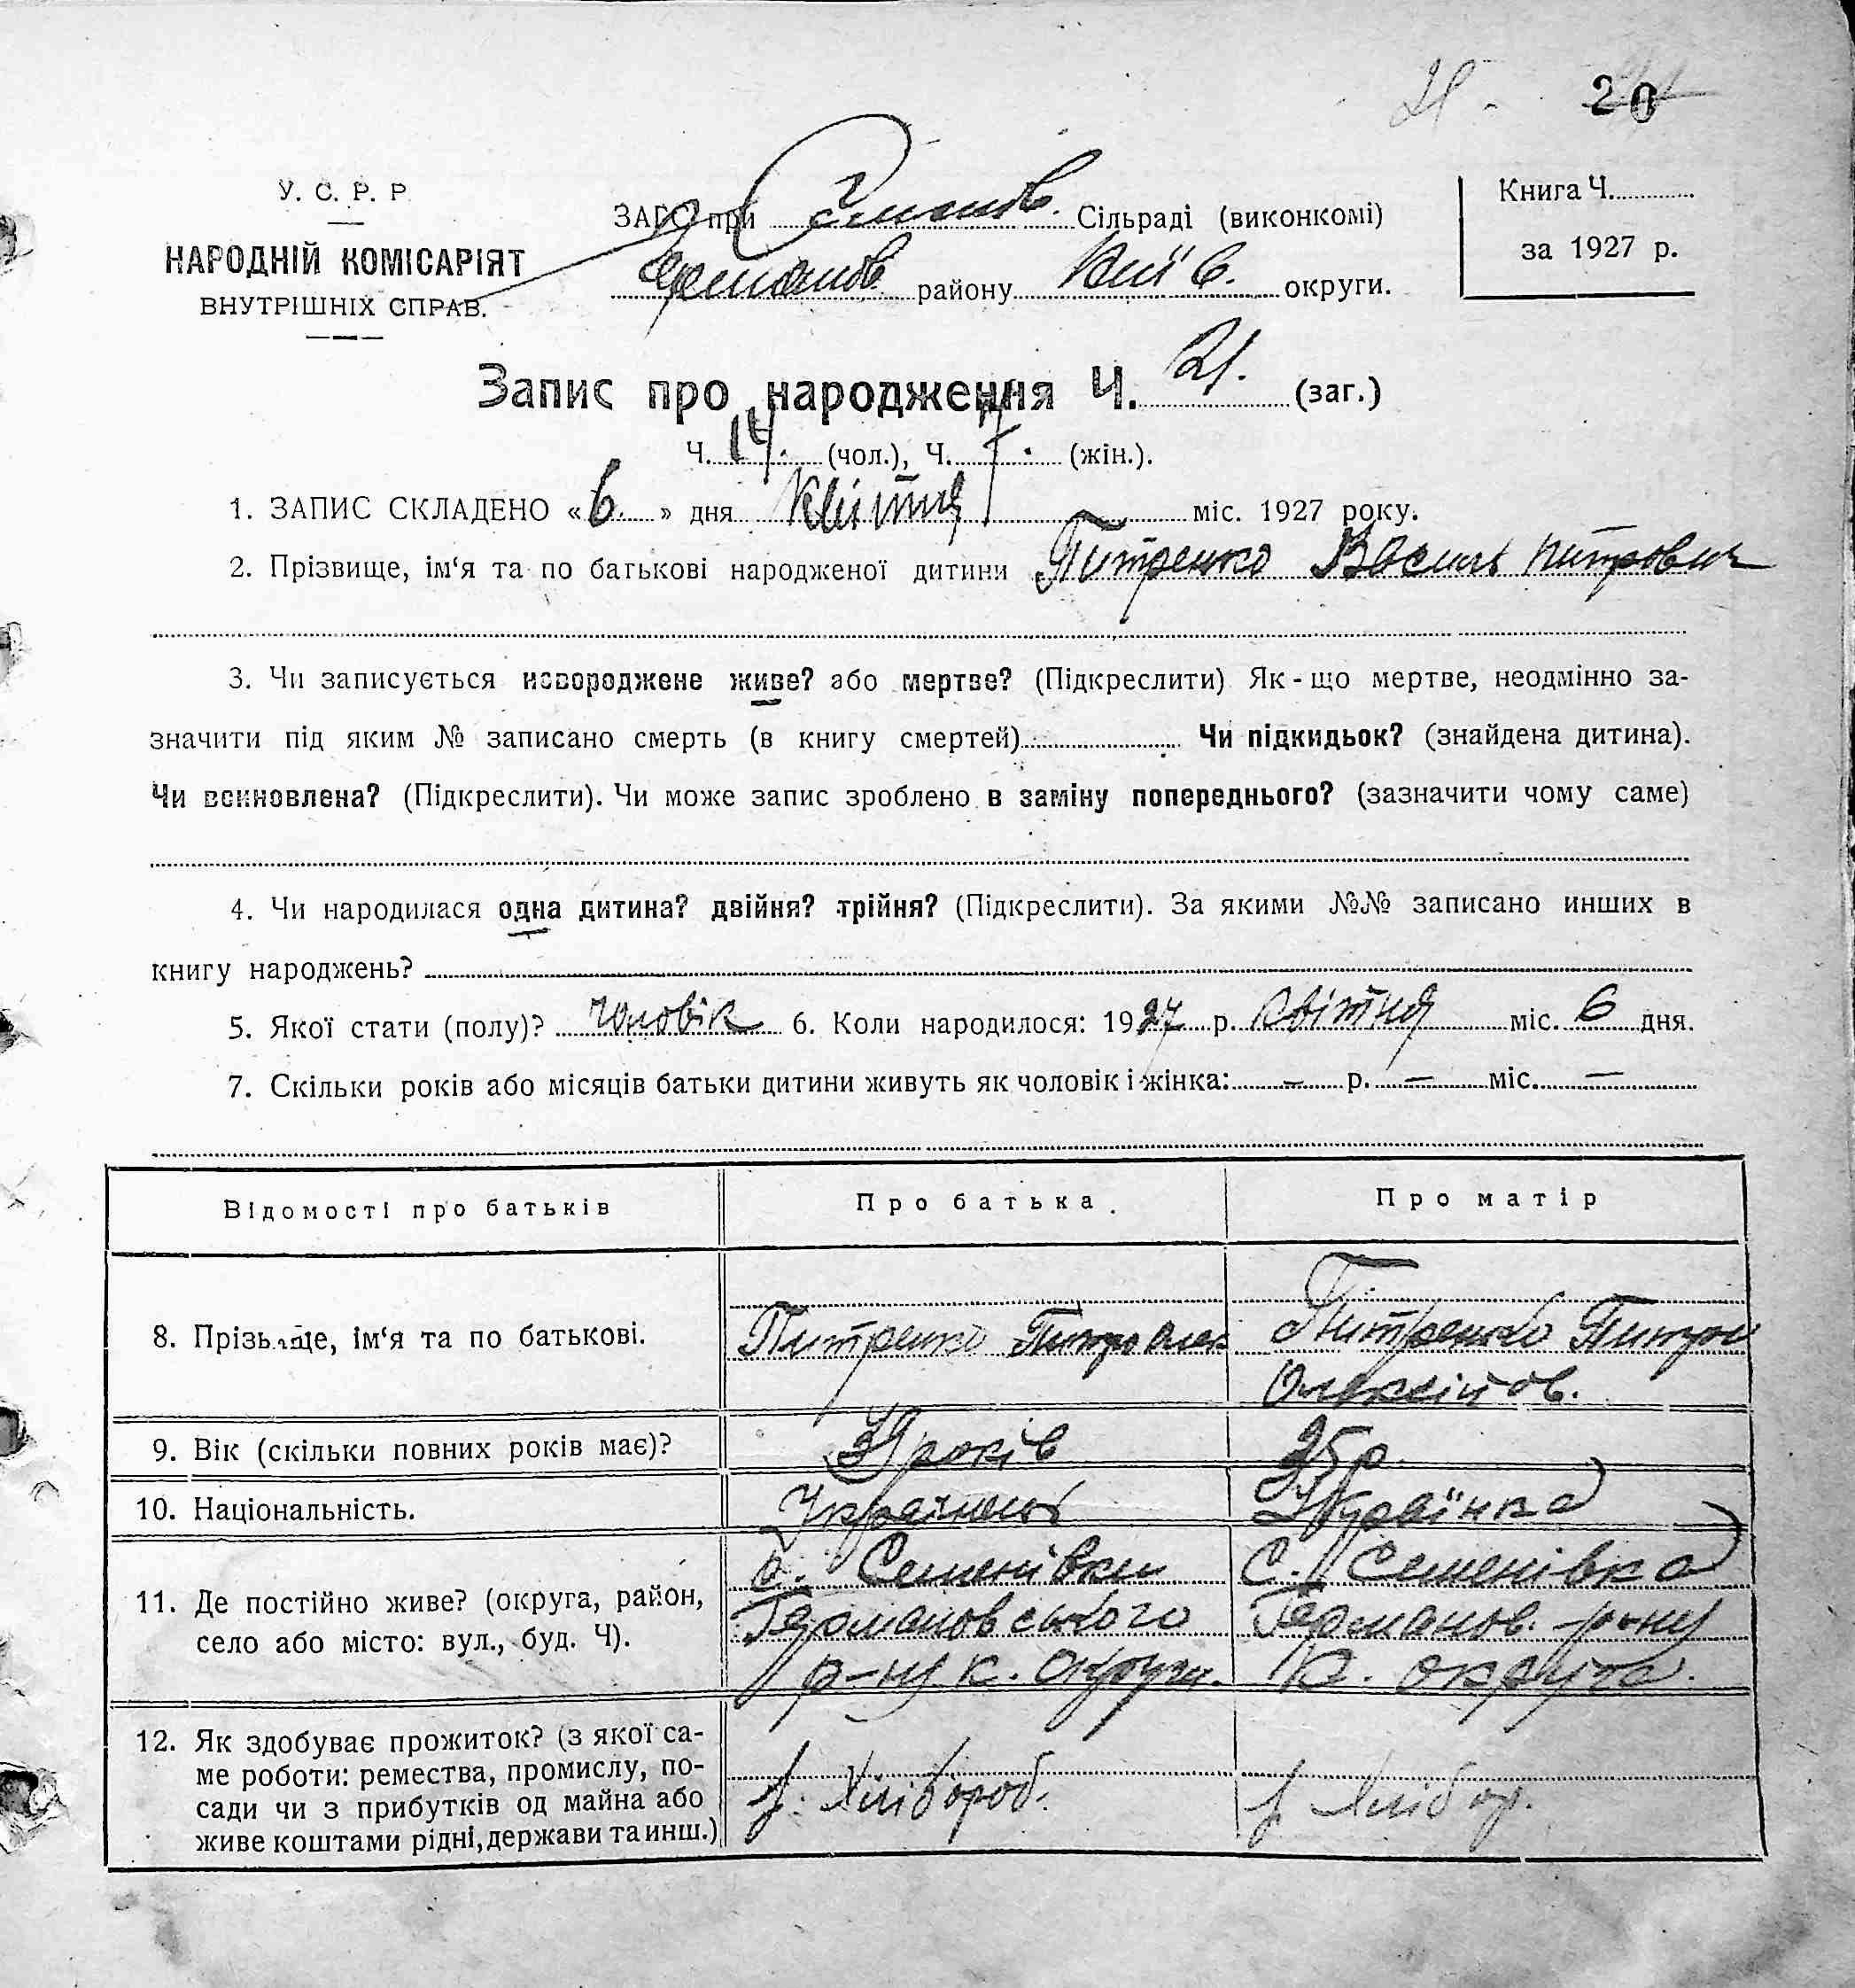 21 20
У. С. Р. Р.
НАРОДНІЙ КОМІСАРІЯТ
ВНУТРІШНІХ СПРАВ.
ЗАГС при Семенов. Сільраді (виконкомі)
Германов району Київ. округи.
Книга Ч.
за 1927 р.
Запис про народження Ч. 21. (заг.)
Ч. 14. (чол.), Ч. 7. (жін.).
1. ЗАПИС СКЛАДЕНО «6» дня Квітня міс. 1927 року.
2. Прізвище, ім'я та по батькові народженої дитини Питренко Василь Питрович
3. Чи записується новороджене живе? або мертве? (Підкреслити) Як-що мертве, неодмінно за-
значити під яким № записано смерть (в книгу смертей) Чи підкидьок? (знайдена дитина).
Чи всиновлена? (Підкреслити). Чи може запис зроблено в заміну попереднього? (зазначити чому саме)
4. Чи народилася одна дитина? двійня? трійня? (Підкреслити). За якими №№ записано инших в
книгу народжень?
5. Якої стати (полу)? чоловік 6. Коли народилося: 1927 р. Квітня міс. 6 дня.
7. Скільки років або місяців батьки дитини живуть як чоловік і жінка: — р. — міс. —
Відомості про батьків
Про батька.
Про матір
8. Прізвище, ім'я та по батькові.
Питренко Питро Олек
Питренко
Олексійов.
9. Вік (скільки повних років має)?
39 років
35 р.
10. Національність.
Українець
Українка
11. Де постійно живе? (округа, район,
село або місто: вул., буд. Ч).
с. Семенівки
Германовського
р-ну К. округи.
С. Семенівка
Германов. р-ну
К. округа.
12. Як здобуває прожиток? (з якої са-
ме роботи: ремества, промислу, по-
сади чи з прибутків од майна або
живе коштами рідні, держави та инш.)
Хлібороб.
Хлібор.